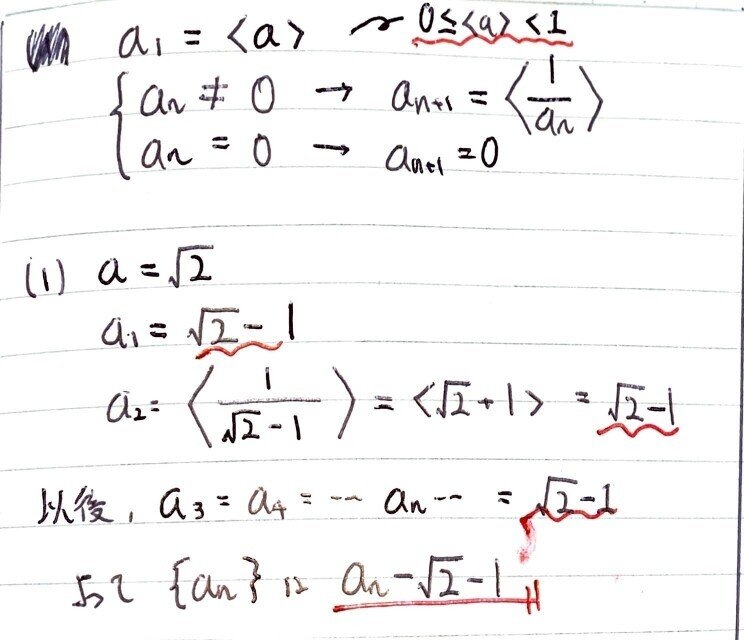 a₁ = ⟨a⟩ 〜 0≤⟨a⟩<1
{ aₙ ≠ 0 → aₙ₊₁ = ⟨1/aₙ⟩
aₙ = 0 → aₙ₊₁ = 0
(1) a = √2
a₁ = √2 - 1
a₂ = ⟨1/(√2-1)⟩ = ⟨√2+1⟩ = √2-1
以後, a₃ = a₄ = … aₙ … = √2-1
よって {aₙ} は aₙ-√2-1